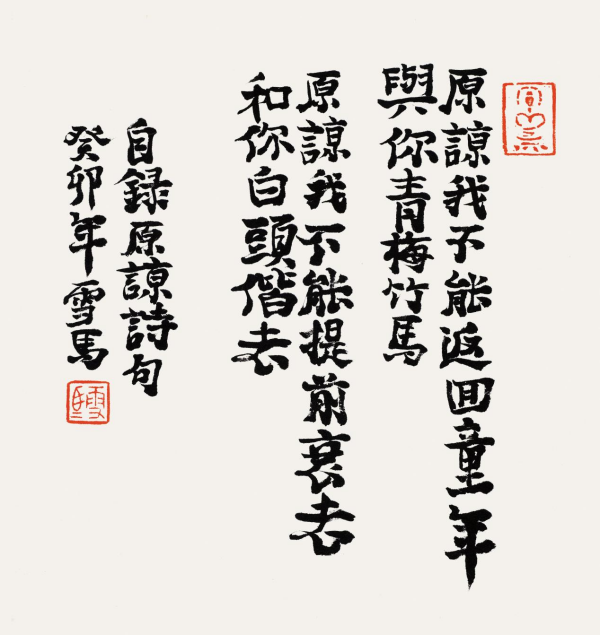 原諒我不能返回童年
與你青梅竹馬
原諒我不能提前衰老
和你白頭偕老
自録原諒詩句
癸卯年雪馬